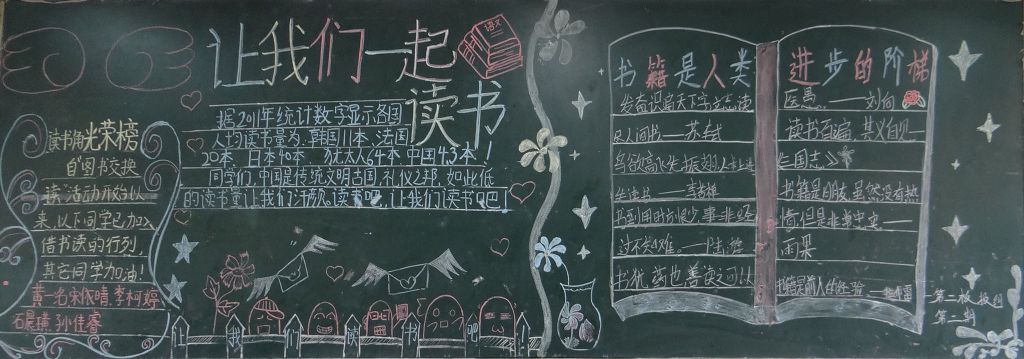 让我们一起
读书
语文
读书角光荣榜
自"图书交换
读"活动开始以
来,以下同学已加入
借书读的行列,
其它同学加油!
黄一名 李柯婷
石晨璜 孙佳睿
据2011年统计数字显示各国
人均读书量为:韩国11本、法国
20本、日本40本、犹太人64本 中国4.5本!
同学们,中国是传统文明古国,礼仪之邦,如此低
的读书量让我们汗颜。读书吧,让我们读书吧!
让我们读书吧
书籍是人类
发奋识遍天下字,立志读
尽人间书——苏轼
鸟欲高飞先振翅,人求上进
先读书——李苦禅
书到用时方恨少,事非经
过不知难。——陆游
书犹药也,善读之可以
进步的阶梯
医愚。——刘向
读书百遍,其义自见
三国志》
书籍是朋友,虽然没有热
情,但是非常忠实——
雨果
第二板报
第二期